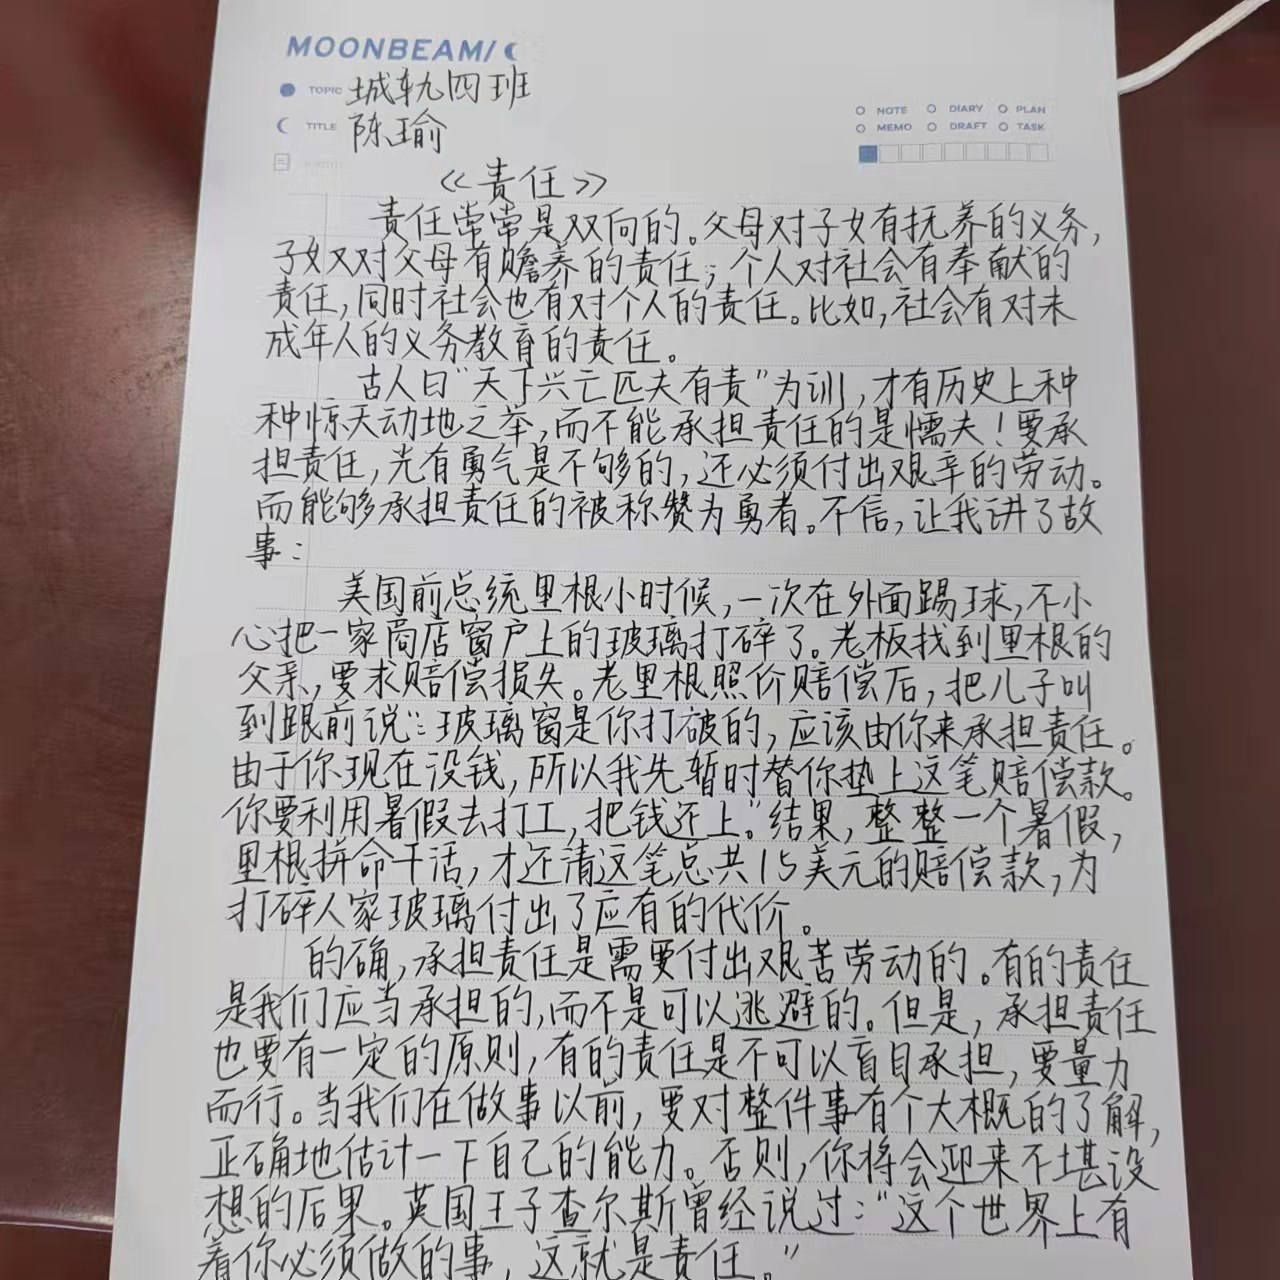 MOONBEAM/
TOPIC 城轨四班
TITLE 陈瑜
NOTE DIARY PLAN
MEMO DRAFT TASK
《责任》
责任常常是双向的。父母对子女有抚养的义务,
子女又对父母有赡养的责任;个人对社会有奉献的
责任,同时社会也有对个人的责任。比如,社会有对未
成年人的义务教育的责任。
古人曰"天下兴亡匹夫有责"为训,才有历史上种
种惊天动地之举,而不能承担责任的是懦夫!要承
担责任,光有勇气是不够的,还必须付出艰辛的劳动。
而能够承担责任的被称赞为勇者。不信,让我讲了故
事:
美国前总统里根小时候,一次在外面踢球,不小
心把一家商店窗户上的玻璃打碎了。老板找到里根的
父亲,要求赔偿损失。老里根照价赔偿后,把儿子叫
到跟前说":玻璃窗是你打破的,应该由你来承担责任。
由于你现在没钱,所以我先暂时替你垫上这笔赔偿款。
你要利用暑假去打工,把钱还上。"结果,整整一个暑假,
里根拼命干活,才还清这笔总共15美元的赔偿款,为
打碎人家玻璃付出了应有的代价。
的确,承担责任是需要付出艰苦劳动的。有的责任
是我们应当承担的,而不是可以逃避的。但是,承担责任
也要有一定的原则,有的责任是不可以盲目承担,要量力
而行。当我们在做事以前,要对整件事有个大概的了解,
正确地估计一下自己的能力。否则,你将会迎来不堪设
想的后果。英国王子查尔斯曾经说过:"这个世界上有
着你必须做的事,这就是责任。"